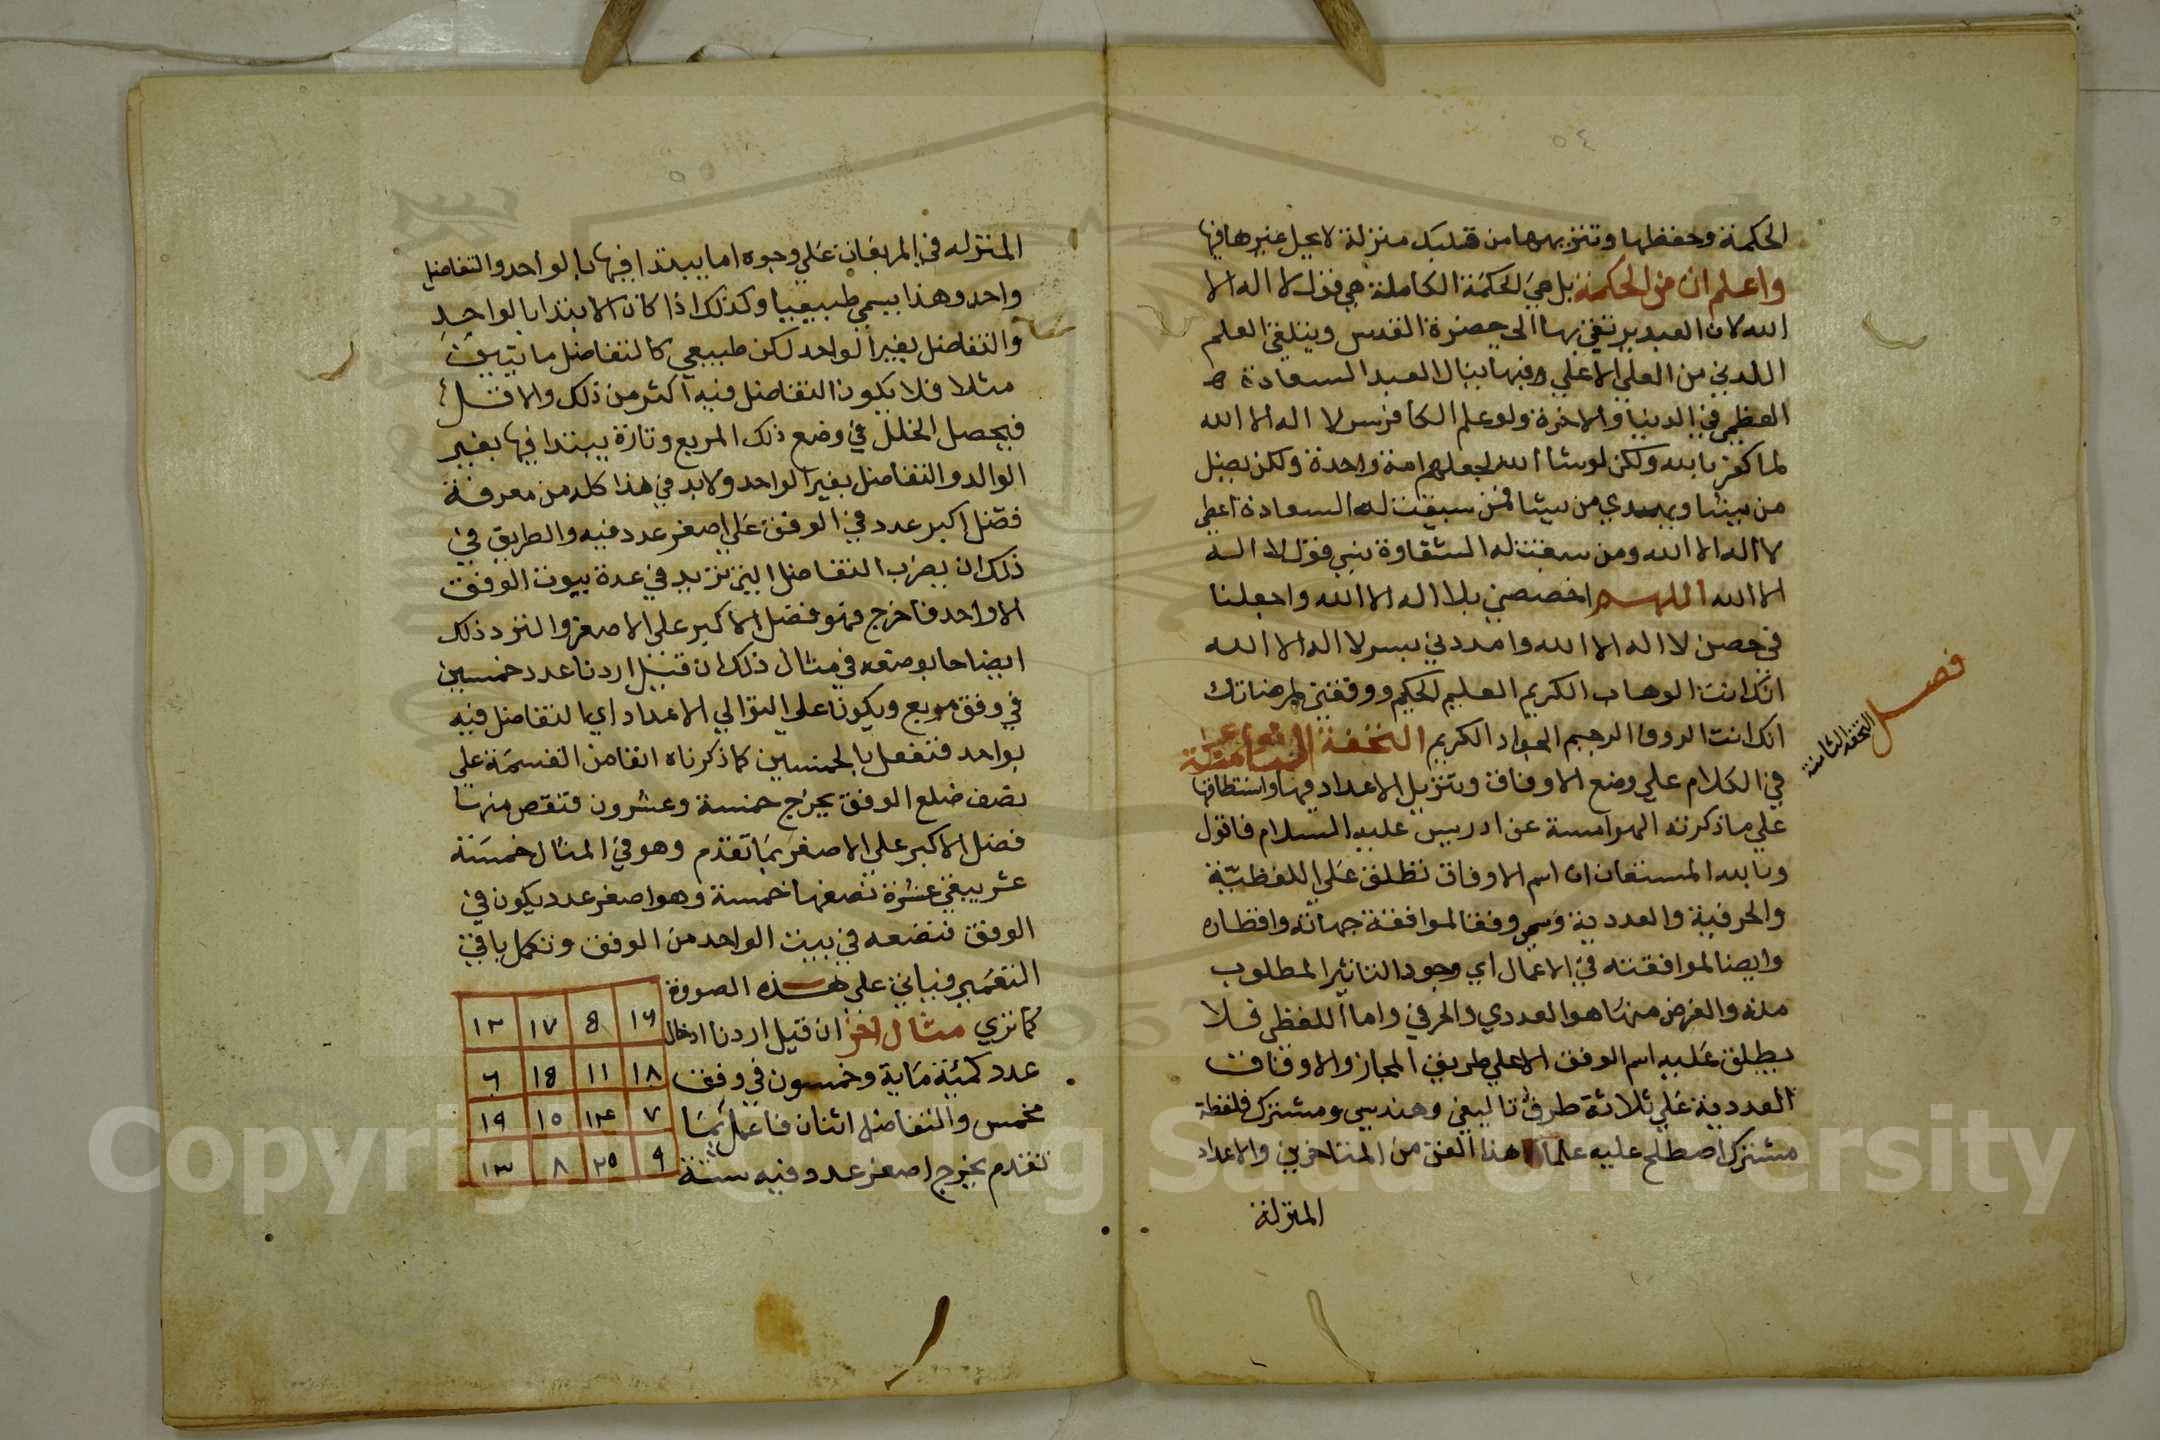 ٥٤
الحكمة وحفظها وتنزيهها من قلبك منزلة لا يحل غيرها فيها
واعلم ان من الحكمة بل هي الحكمة الكاملة هي قول لا اله الا
الله لان العبد يرتقي بها الى حضرة القدس ويتلقى العلم
اللدني من العلي الاعلي وفيها ينال العبد السعادة
العظمي في الدنيا والاخرة ولو علم الكافر سر لا اله الا الله
لما كفر بالله ولكن لو شا الله لجعلهم امة واحدة ولكن يضل
من يشا ويهدي من يشا فمن سبقت له السعادة اعطي
لا اله الا الله ومن سبقت له الشقاوة نسي قول لا اله
الا الله اللهم اخصصني بلا اله الا الله واجعلنا
في حصن لا اله الا الله وامددني بسر لا اله الا الله
انك انت الوهاب الكريم العليم الحكيم ووفقني لمرضاتك
انك انت الروف الرحيم الجواد الكريم التحفة
في الكلام علي وضع الاوفاق وتنزيل الاعداد فيها واستنطاقها
علي ما ذكرته الهرامسة عن ادريس عليه السلام فاقول
وبالله المستعان ان اسم الاوفاق تطلق علي اللفظية
والحرفية والعددية وسمي وفقا لموافقة جهاته واقطاره
وايضا لموافقته في الاعمال اي وجود التاثير المطلوب
منه والغرض منها هو العددي والحرفي واما اللفظي فلا
يطلق عليه اسم الوفق الا علي طريق المجاز والاوفاق
العددية علي ثلاثة طرق تاليفي وهندسي ومشترك فلفظة
مشترك اصطلح عليه علما هذا الفن من المتاخرين والاعداد
المنزلة
فصل
التحفة الثامنة
٥٥
المنزله في المربعات علي وجوه اما يبتدا فيها بالواحد والتفاضل
واحد وهذا يسمي طبيعيا وكذلك اذا كان الابتدا بالواحد
والتفاضل بغير الواحد لكن طبيعي كالتفاضل ماتين
مثلا فلا يكون التفاضل فيه اكثر من ذلك والا قل
فيحصل الخلل في وضع ذلك المربع وتارة يبتدا فيها بغير
الوالد والتفاضل بغير الواحد ولابد في هذا كله من معرفة
فضل اكبر عدد في الوفق علي اصغر عدد فيه والطريق في
ذلك ان يضرب التفاضل الذي تريد في عدة بيوت الوفق
الا واحد فما خرج فهو فضل الاكبر على الاصغر والنزد ذلك
ايضاحا بوضعه في مثال ذلك ان قيل اردنا عدد خمسين
في وفق مربع ويكون علي التوالي الاعداد اي التفاضل فيه
بواحد فتفعل بالخمسين كما ذكرناه انفا من القسمة علي
نصف ضلع الوفق يخرج خمسة وعشرون فتقص منها
فضل الاكبر علي الاصغر بما تقدم وهو في المثال خمسة
عشر يبقي عشرة نصفها خمسة وهو اصغر عدد يكون في
الوفق فتضعه في بيت الواحد من الوفق وتكمل باقي
التعمير فياتي علي هذه الصورة
كما تري مثال اخر ان قيل اردنا ادخال
عدد كمئة ماية وخمسون في وفق
مخمس والتفاضل اثنان فاعمل بما
تقدم يخرج اصغر عدد فيه ستة
Copyright © King Saud University